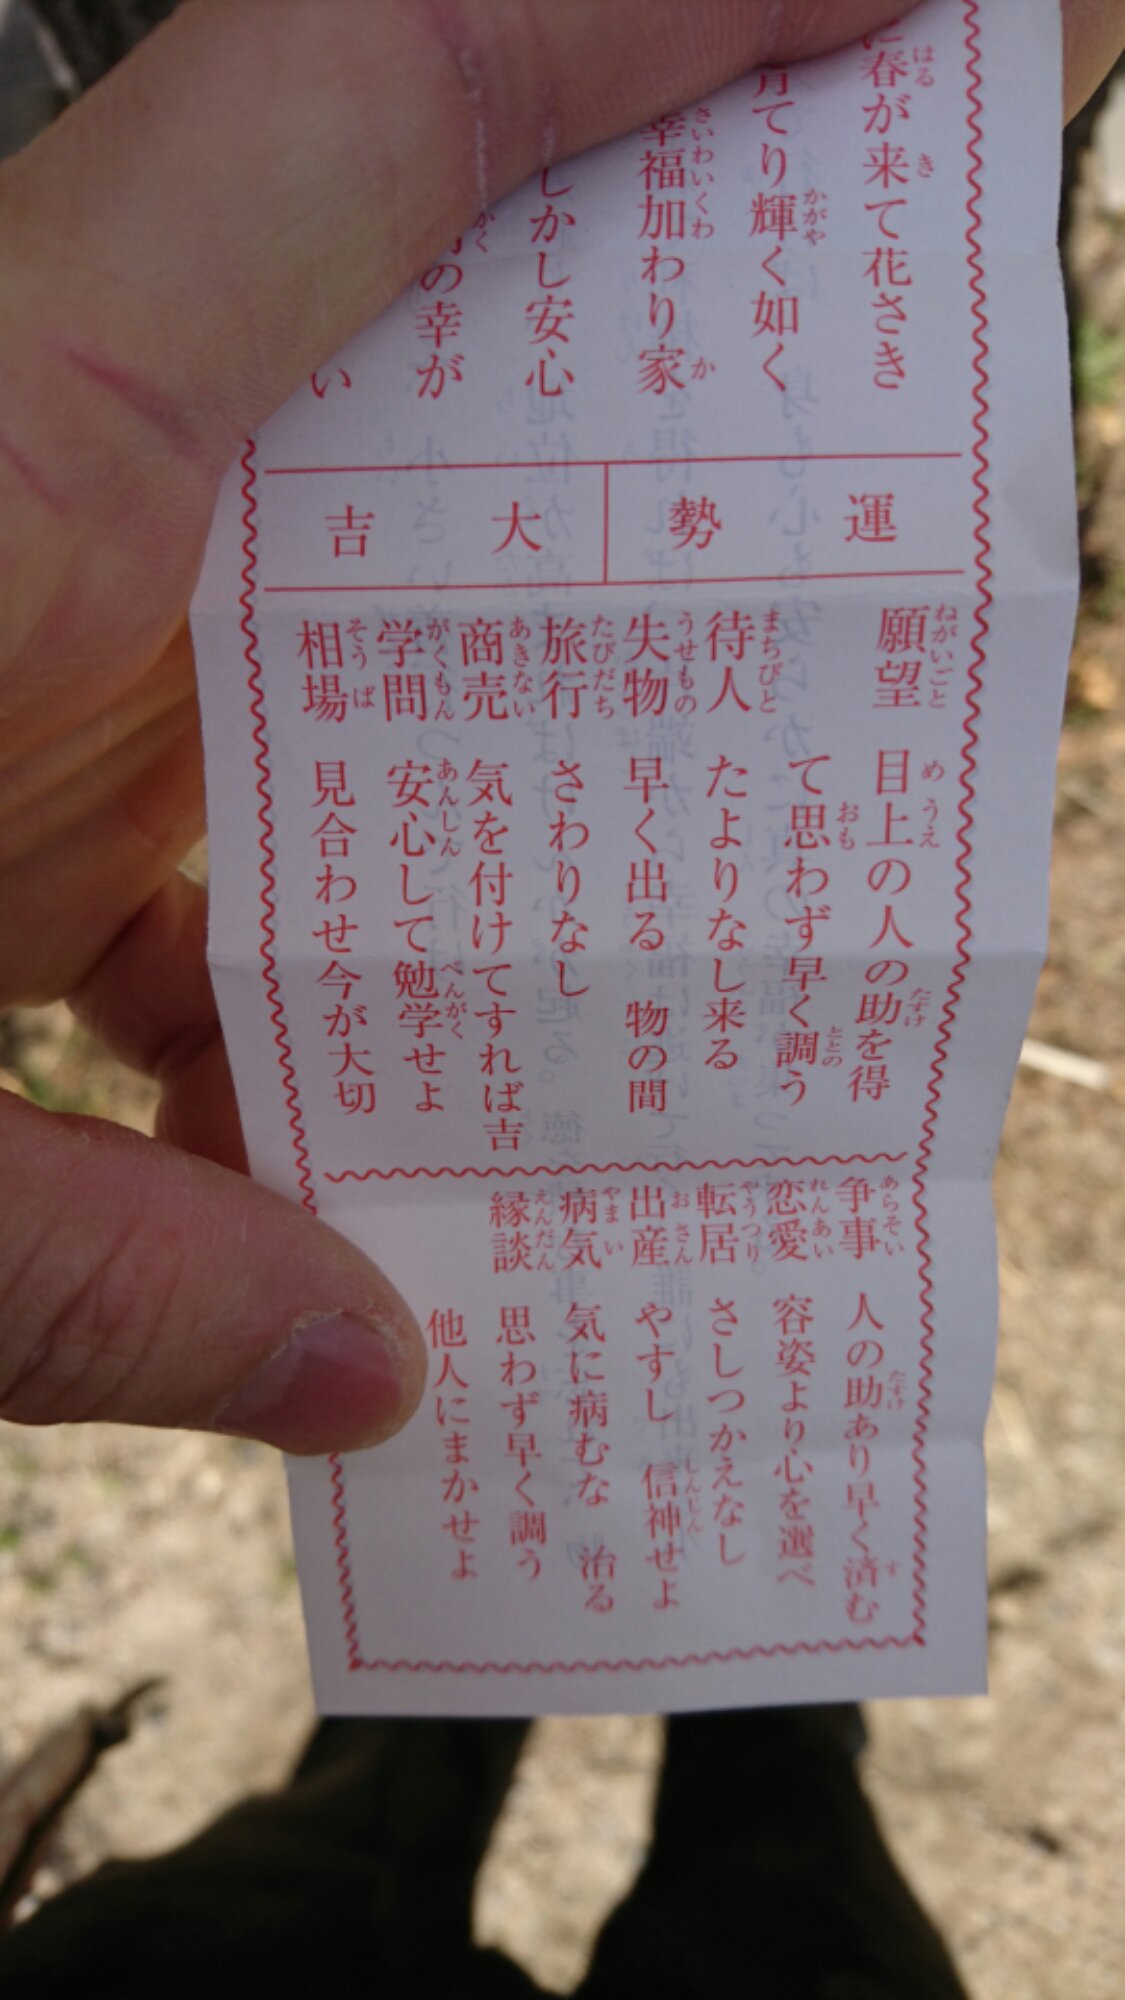 春が来て花さき
育てり輝く如く
幸福加わり家
しかし安心
の幸が
い
運勢 大吉
願望 目上の人の助を得
て思わず早く調う
待人 たよりなし来る
失物 早く出る 物の間
旅行 さわりなし
商売 気を付けてすれば吉
学問 安心して勉学せよ
相場 見合わせ今が大切
争事 人の助あり早く済む
恋愛 容姿より心を選べ
転居 さしつかえなし
出産 やすし 信神せよ
病気 気に病むな 治る
縁談 思わず早く調う
他人にまかせよ